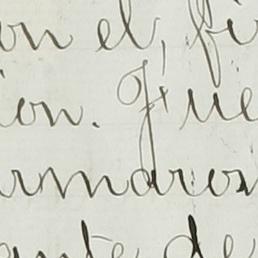 on el, fi
ion. Fue
rmaron
ante de